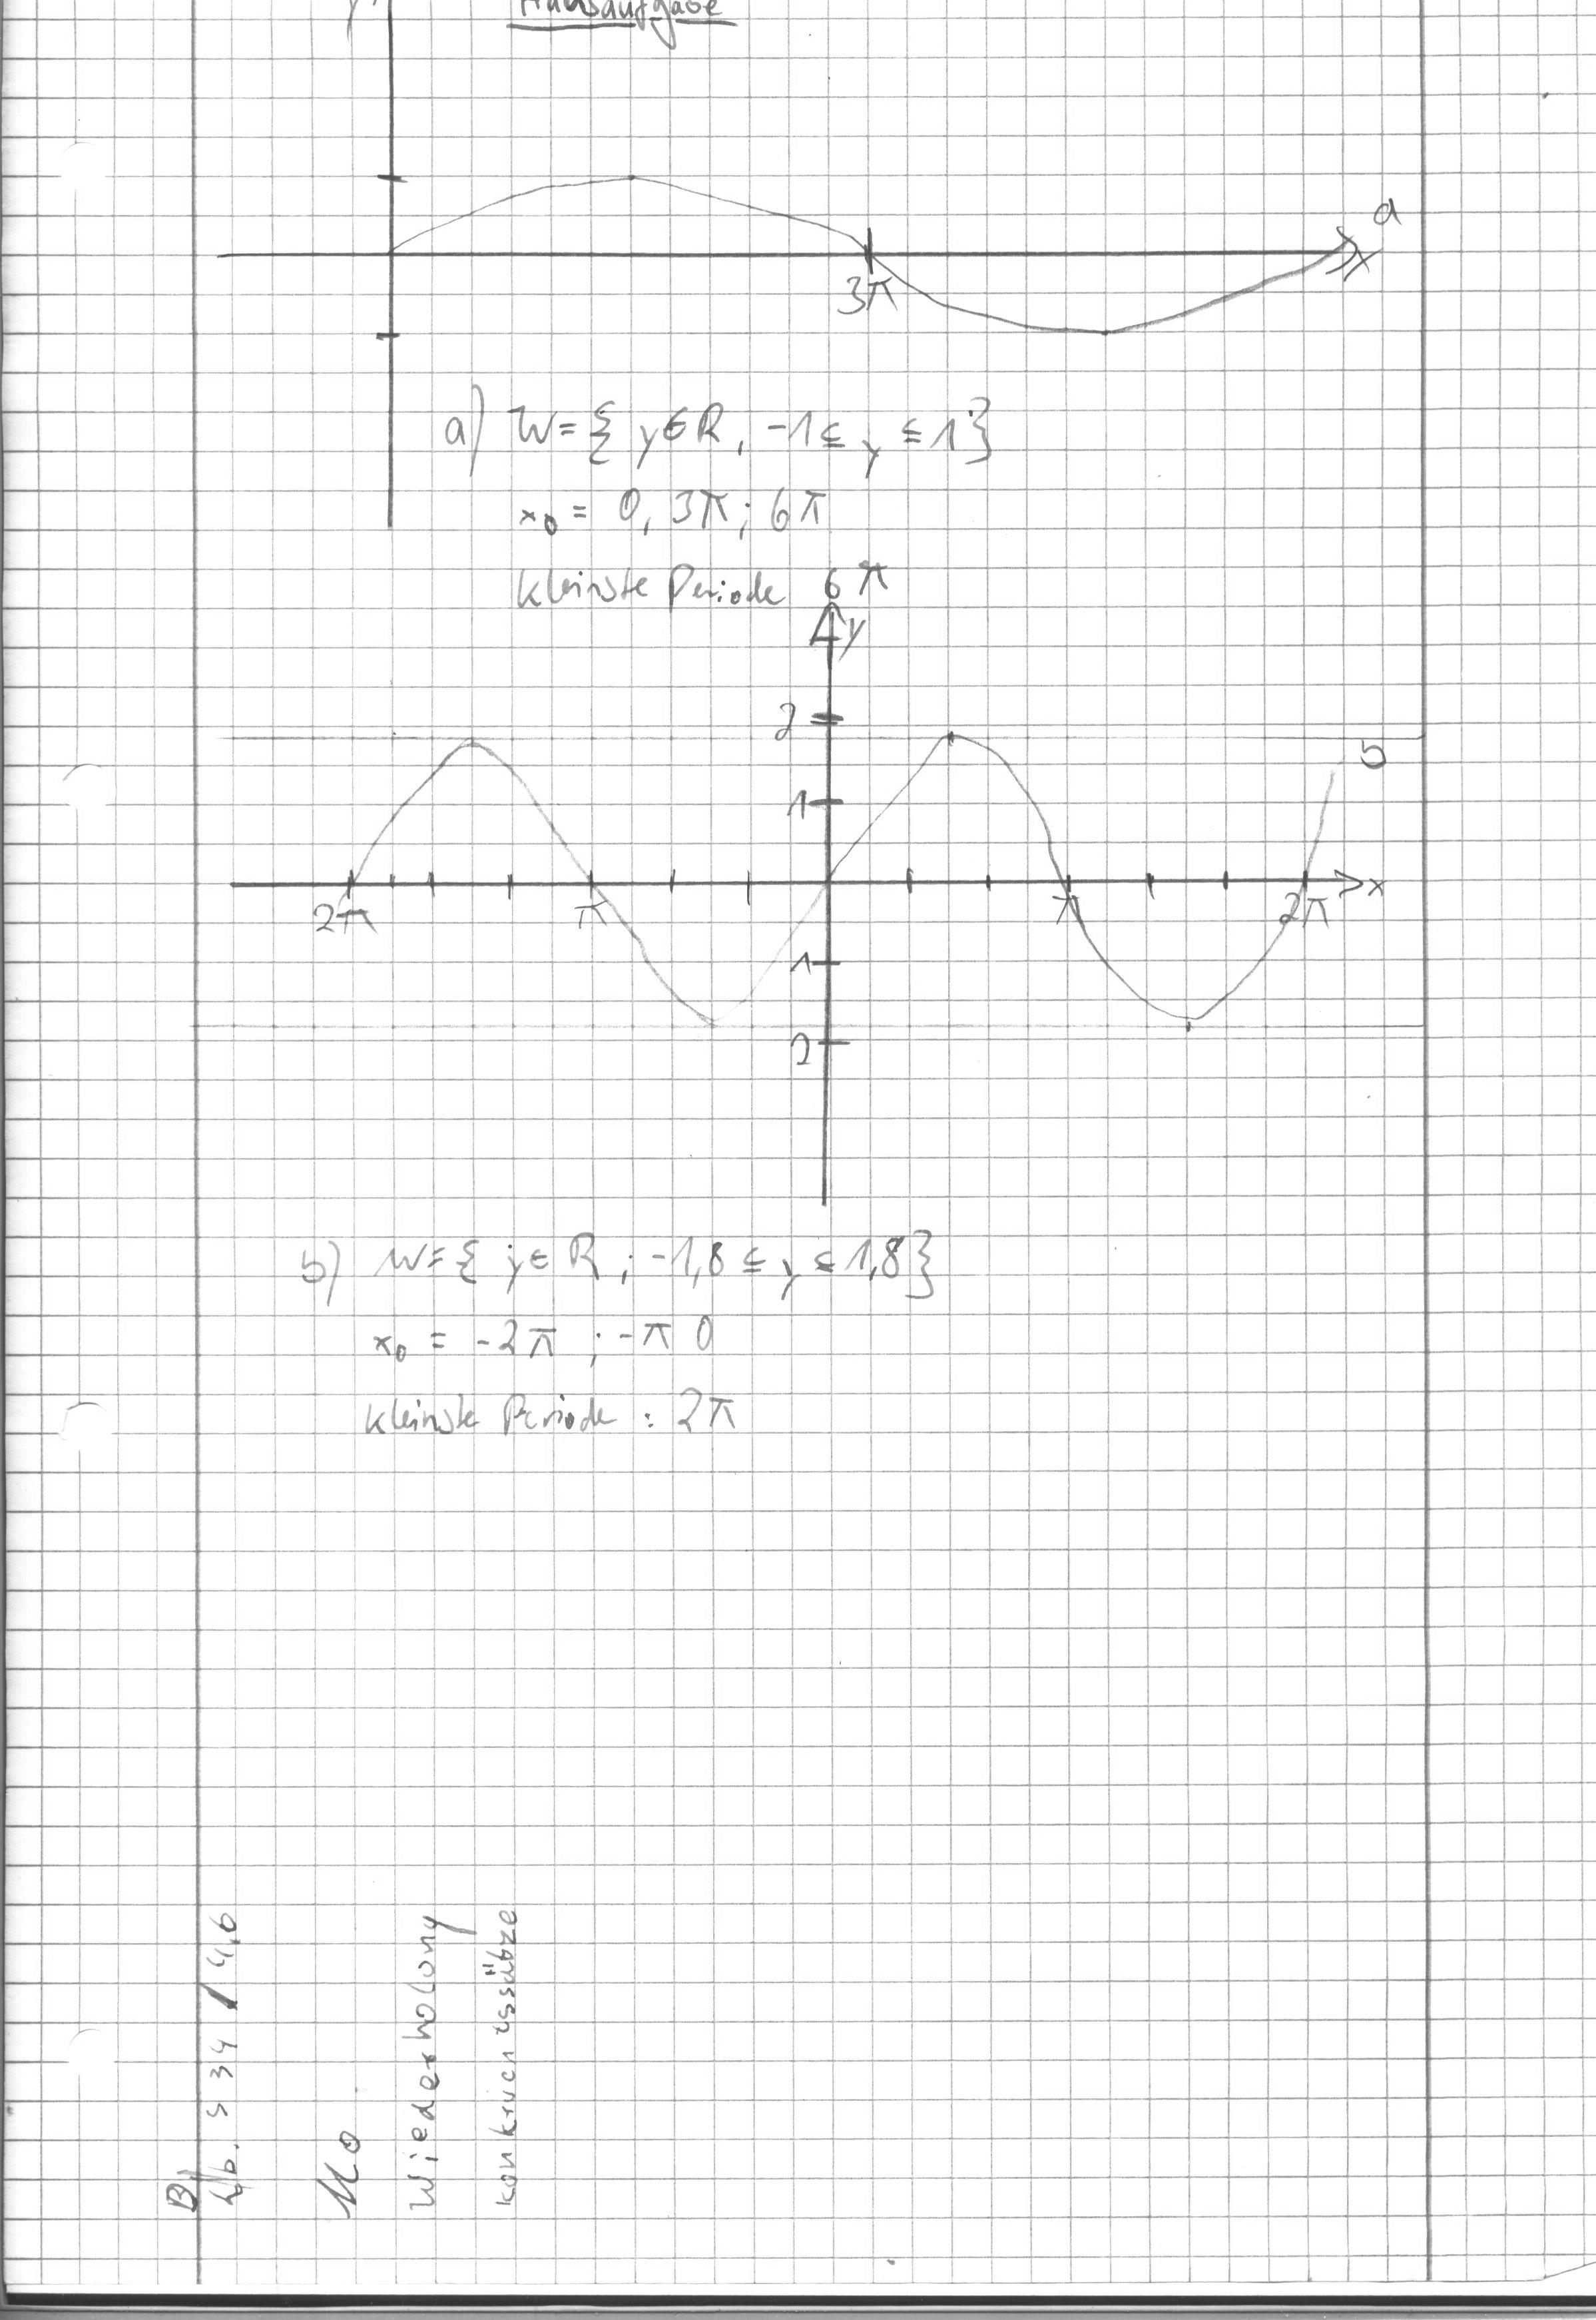 Hausaufgabe
a
x
3π
a) W = { y ∈ R, -1 ≤ y ≤ 1 }
x₀ = 0, 3π; 6π
kleinste Periode 6π
y
2
b
1
2π π π 2π x
1
2
b) W = { y ∈ R ; -1,8 ≤ y ≤ 1,8 }
x₀ = -2π ; -π 0
kleinste Periode : 2π
B
Lb. S 34 / 4,6
Mo
Wiederholony
konkruenzssätze